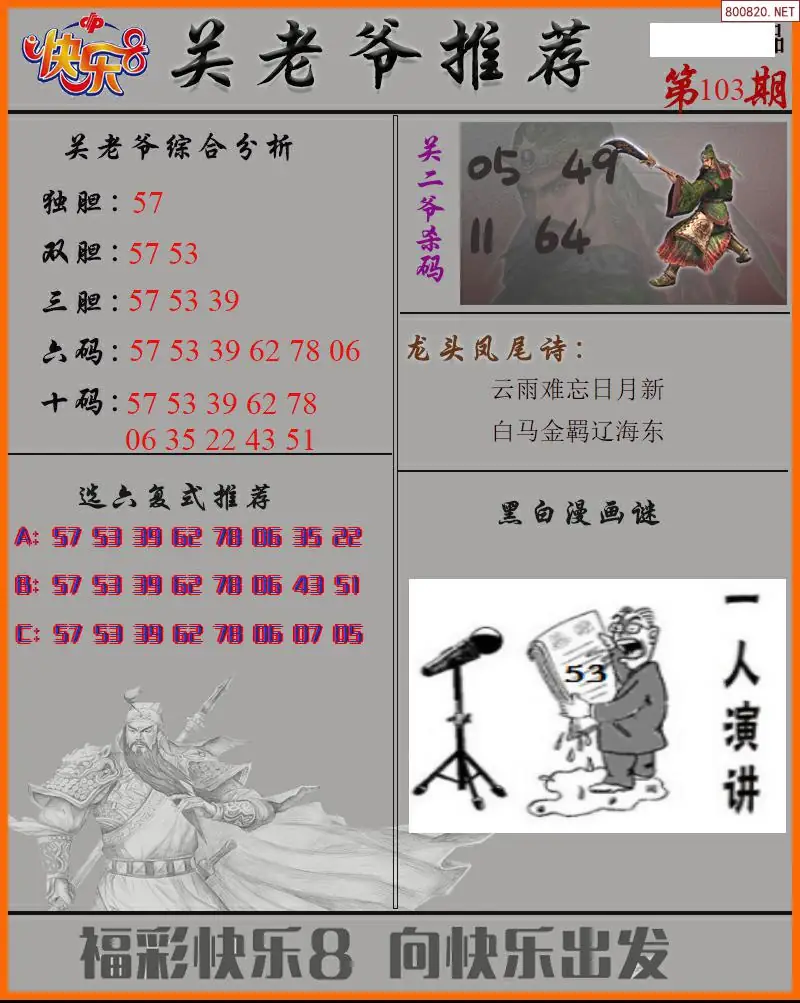 800820.NET
快乐8
关老爷推荐
第103期
关老爷综合分析
独胆：57
双胆：57 53
三胆：57 53 39
六码：57 53 39 62 78 06
十码：57 53 39 62 78
06 35 22 43 51
选六复式推荐
A: 57 53 39 62 78 06 35 22
B: 57 53 39 62 78 06 43 51
C: 57 53 39 62 78 06 07 05
关二爷杀码
05 49
11 64
龙头凤尾诗：
云雨难忘日月新
白马金羁辽海东
黑白漫画谜
53
一人演讲
福彩快乐8 向快乐出发